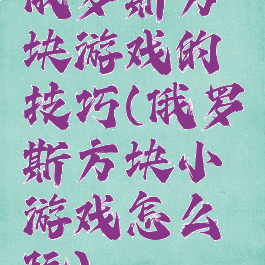 俄罗斯方
块游戏的
技巧(俄罗
斯方块小
游戏怎么
玩)